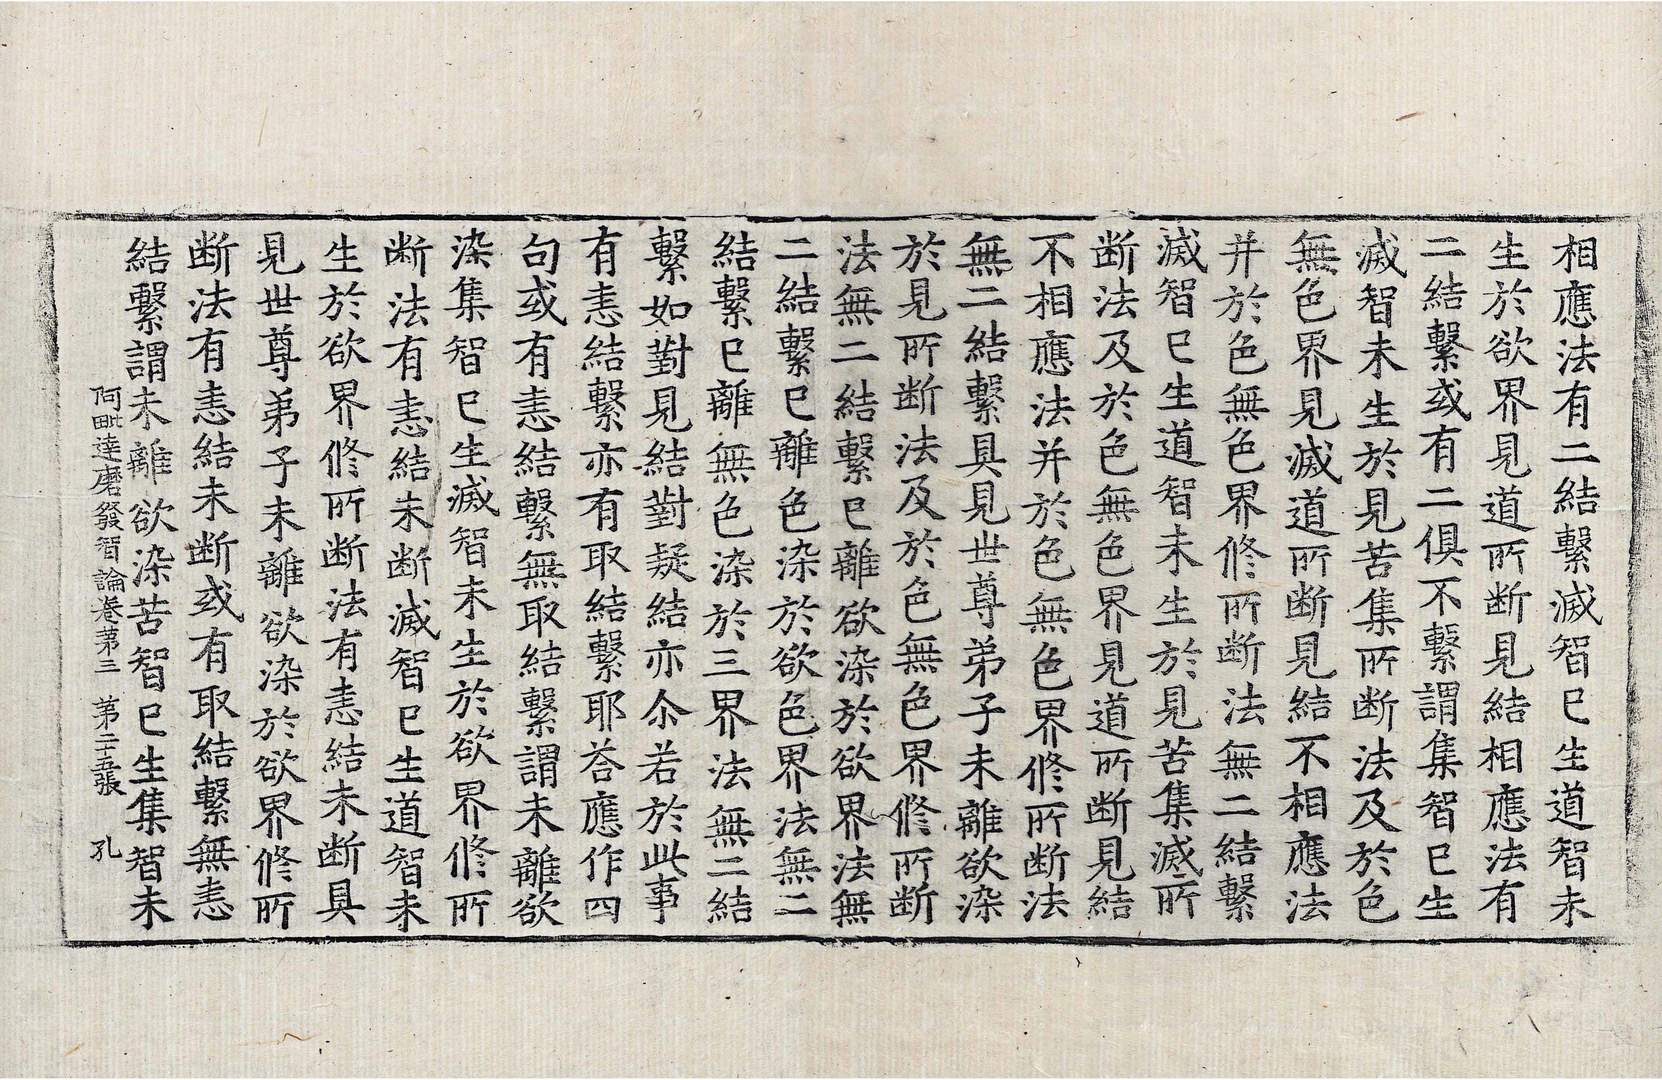 相應法有二結繫滅智已生道智未
生於欲界見道所斷見結相應法有
二結繫或有二俱不繫謂集智已生
滅智未生於見苦集所斷法及於色
無色界見滅道所斷見結不相應法
并於色無色界修所斷法無二結繫
滅智已生道智未生於見苦集滅所
斷法及於色無色界見道所斷見結
不相應法并於色無色界修所斷法
無二結繫具見世尊弟子未離欲染
於見所斷法及於色無色界修所斷
法無二結繫已離欲染於欲界法無
二結繫已離色染於欲色界法無二
結繫已離無色染於三界法無二結
繫如對見結對疑結亦尒若於此事
有恚結繫亦有取結繫耶荅應作四
句或有恚結繫無取結繫謂未離欲
染集智已生滅智未生於欲界修所
斷法有恚結未斷滅智已生道智未
生於欲界修所斷法有恚結未斷具
見世尊弟子未離欲染於欲界修所
斷法有恚結未斷或有取結繫無恚
結繫謂未離欲染苦智已生集智未
阿毗達磨發智論卷第三 第二十五張 孔